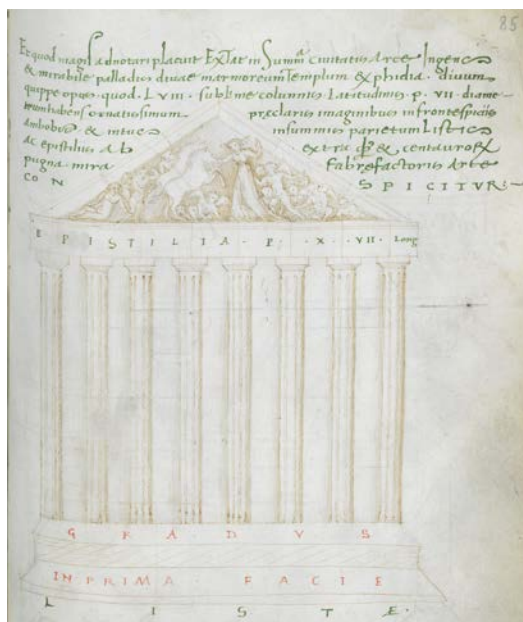 85
Et quod magis adnotari placuit Extat in Summa civitatis Arce Ingens
& mirabile palladis divae marmoreum Templum & phidia. divum
quippe opus. quod. LVIII. sublime columnis Latitudinis. p. VII. diame
trum habens ornatissimum praeclaris imaginibus in frontespiciis
ambobus & intus in summis parietum Listis
ac epistilus ab extra & centauror
pugna mira Fabrefactoris Arte
CON SPICITVR
EPISTILIA. P. X. VII. Long
GRADVS
IN PRIMA. FACIE
LISTE.